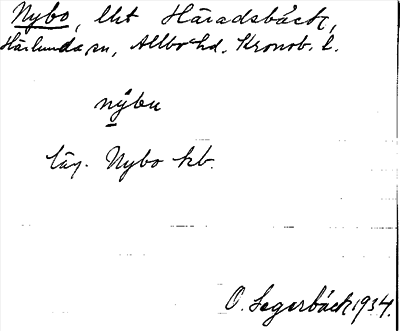 Nybo, lht Häradsbäck,
Härlunda sn, Allbo hd. Kronob. l.
nybu
läg. Nybo kb.
O. Segerbäck 1934.